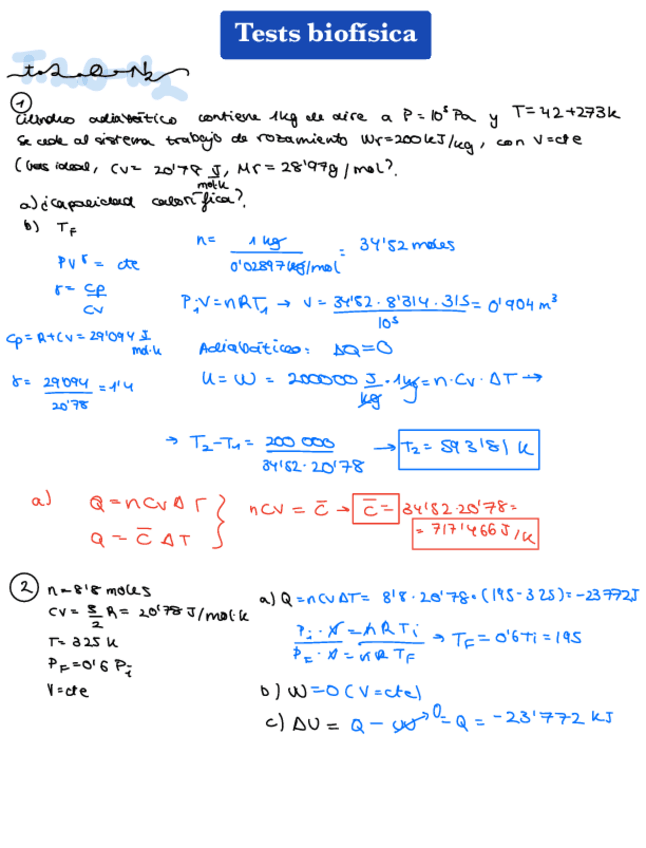 Tests biofísica
①
Cilindro adiabático contiene 1kg de aire a P=10⁵ Pa y T=42+273K
Se cede al sistema trabajo de rozamiento Wr=200kJ/kg, con V=cte
(Gas ideal, Cv= 20'78 J/mol·K, Mr=28'97g/mol?.
a) ¿capacidad calorífica?.
b) T_F
n= 1 kg / 0'02897 kg/mol = 34'52 moles
PV^γ = cte
γ= Cp/Cv
P₁·V=nRT₁ → V= 34'52·8'314·315 / 10⁵ = 0'904 m³
Cp=R+Cv=29'094 J/mol·K
Adiabático: ΔQ=0
γ= 29'094 / 20'78 = 1'4
U=W= 200000 J/kg · 1kg = n·Cv·ΔT →
→ T₂-T₁= 200 000 / 34'52·20'78 → T₂= 593'81 K
a) Q=nCvΔT
Q= C̄ΔT } nCv= C̄ → C̄= 34'52·20'78=
= 717'466 J/K
② n=8'8 moles
a) Q=nCvΔT= 8'8·20'78·(195-325)=-23772J
Cv= 5/2 R= 20'78 J/mol·K
T=325 K
Pi·V=nRTi / P_F·V=nRT_F → T_F=0'6Ti=195
P_F=0'6 Pi
V=cte
b) W=0 (V=cte)
c) ΔU= Q-W→0 =Q= -23'772 KJ